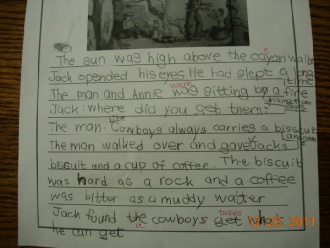 The sun was high above the cayon wall
Jack opended his eyes. He had slept a long
time
The man and Annie was sitting by a fire
were
Jack: where did you get them?
The man: Cowboys always carries a biscuit
The man walked over and gave Jack a
biscuit and a cup of coffee. The biscuit
was hard as a rock and a coffee
was bitter as a muddy water
Jack found the cowboys get what
takes
a
he can get
2011